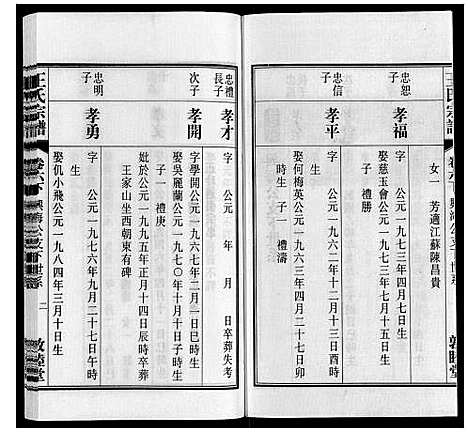 王氏宗譜
敦睦堂
女一 芳適江蘇陳昌貴
忠恕子
孝福
字 公元一九七
娶慈玉會公元一九七三年七月十五日生
子一 禮勝
忠信子
孝平
字 公元一九六二年十二月十三日酉時
娶何梅英公元一九六三年四月二十七日卯
時生 子一 禮濤
忠禮長子
孝才
字 公元 年 月 日卒葬失考
次子
孝開
字學開公元一九六七年二月一日巳時生
娶吳麗蘭公元一九七〇年十月十日子時生
子一 禮庚
妣於公元一九九五年正月十四日辰時卒葬
王家山坐西朝東有碑
忠明子
孝勇
字 公元一九七六年九月二十七日午時
娶仉小飛公元一九八四年三月十日生
王氏宗譜
二
敦睦堂